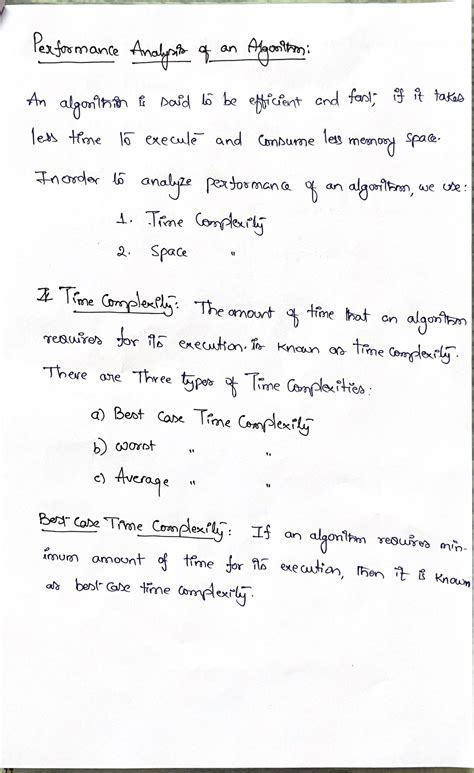 Performance Analysis of an Algorithm:
An algorithm is said to be efficient and fast, if it takes
less time to execute and consume less memory space.
Inorder to analyze performance of an algorithm, we use:
1. Time Complexity
2. Space "
I Time Complexity: The amount of time that an algorithm
requires for its execution. is known as time complexity.
There are Three types of Time Complexities:
a) Best Case Time Complexity
b) worst " "
c) Average " "
Best Case Time Complexity: If an algorithm requires min-
imum amount of time for its execution, then it is known
as best-case time complexity.